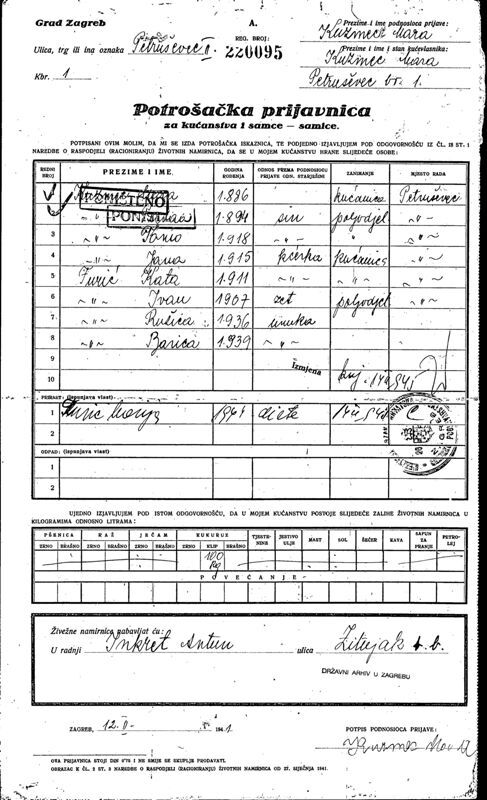 Grad Zagreb
A.
Prezime i ime podnosioca prijave:
Kuzmec Mara
Ulica, trg ili ina oznaka Petruševec II.
REG. BROJ:
220095
Prezime i ime i stan kućevlasnika:
Kuzmec Mara
Kbr. 1
Petruševec br. 1.
Potrošačka prijavnica
za kućanstva i samce — samice.
POTPISANI OVIM MOLIM, DA MI SE IZDA POTROŠAČKA ISKAZNICA, TE PODJEDNO IZJAVLJUJEM POD ODGOVORNOŠĆU IZ ČL. 15 ST. 1
NAREDBE O RASPODJELI (RACIONIRANJU) ŽIVOTNIH NAMIRNICA, DA SE U MOJEM KUĆANSTVU HRANE SLIJEDEĆE OSOBE:
REDNI BROJ PREZIME I IME. GODINA ROĐENJA ODNOS PREMA PODNOSIOCU PRIJAVE ODN. STARJEŠINI ZANIMANJE MJESTO RADA
Kuzmec 1896 kućanica Petruševec
PONIŠTENO
2 1894 sin poljodjel. -„-
3 -„- 1918 -„- „ -„-
4 -„- Jana 1915 kćerka kućanica -„-
5 Turić Kata 1911 -„- -„- -„-
6 -„- Ivan 1907 zet poljodjel. -„-
7 -„- Ružica 1936 unuka
8 -„- Barica 1939 -„-
9
Izmjena
10
PRIRAST: (ispunjava vlast)
1 Turić Marija 1941 dijete
2
ODPAD: (ispunjava vlast)
UJEDNO IZJAVLJUJEM POD ISTOM ODGOVORNOŠĆU, DA U MOJEM KUĆANSTVU POSTOJE SLIJEDEĆE ZALIHE ŽIVOTNIH NAMIRNICA U
KILOGRAMIMA ODNOSNO LITRAMA:
PŠENICA RAŽ JEČAM KUKURUZ TJESTENINE JESTIVO ULJE MAST SOL ŠEĆER KAVA SAPUN ZA PRANJE PETROLEJ
ZRNO BRAŠNO ZRNO BRAŠNO ZRNO BRAŠNO ZRNO KLIP BRAŠNO
100
kg
POVEĆANJE
Živežne namirnice nabavljat ću:
U radnji Inkret Antun ulica Žitnjak b. b.
DRŽAVNI ARHIV U ZAGREBU
ZAGREB, 12. II. 1941
POTPIS PODNOSIOCA PRIJAVE:
Kuzmec Mara
OVA PRIJAVNICA STOJI DIN 0'75 I NE SMIJE SE SKUPLJE PRODAVATI.
OBRAZAC K ČL. 2 ST. 3 NAREDBE O RASPODJELI (RACIONIRANJU) ŽIVOTNIH NAMIRNICA OD 27. SIJEČNJA 1941.